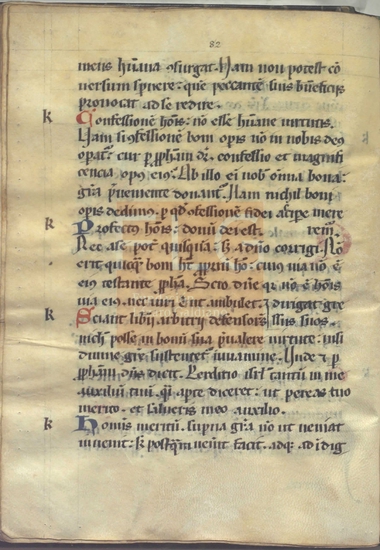 82
mens hu͂ana ꝯsurgat. Nam non potest co͂
versum spnere: que peccante͂ suis beneficijs
provocat ad se redire.
k Confessione͂ ho͂is: no͂ esse hu͂ane virtutis.
Nam si ꝯfessione͂ boni opis no͂ in nobis deus
opat: cur p͂ ꝓpha͂m dr͂. confessio et magnifi
cencia opus eius. Ab illo ei nob omnia bona:
gr͂a p͂veniente donant͂. Nam nichil boni
opis
k Profectus ho͂is: donu͂ dei est. rem
Nec a se pot͂ quisqua͂: s; a d͂no corrigi. No͂
erit quicq͂ boni h͂t ꝓpriu͂ ho͂: cuius via no͂ e͂
eius testante ꝓpha. Scio d͂ne q͂r no͂ e͂ ho͂is
via eius: nec viri e͂ ut ambulet: & dirigat gre
k Sciant liberi arbitrij defensores ssus suos.
nichil posse in bonu͂ sua p͂valere virtute: nisi
divine gr͂e sustentet͂ iuvamine. Unde & p͂
ꝓpha͂m d͂ns dicit. Perditio tua isr͂l tantu͂ in me
auxiliu͂ tuu͂. q͂i apte diceret: ut pereas tuo
merito. et salveris meo auxilio.
k Hominis meritu͂. superna gr͂a no͂ ut veniat
invenit: s; postq͂m venerit facit. adq; ad indig